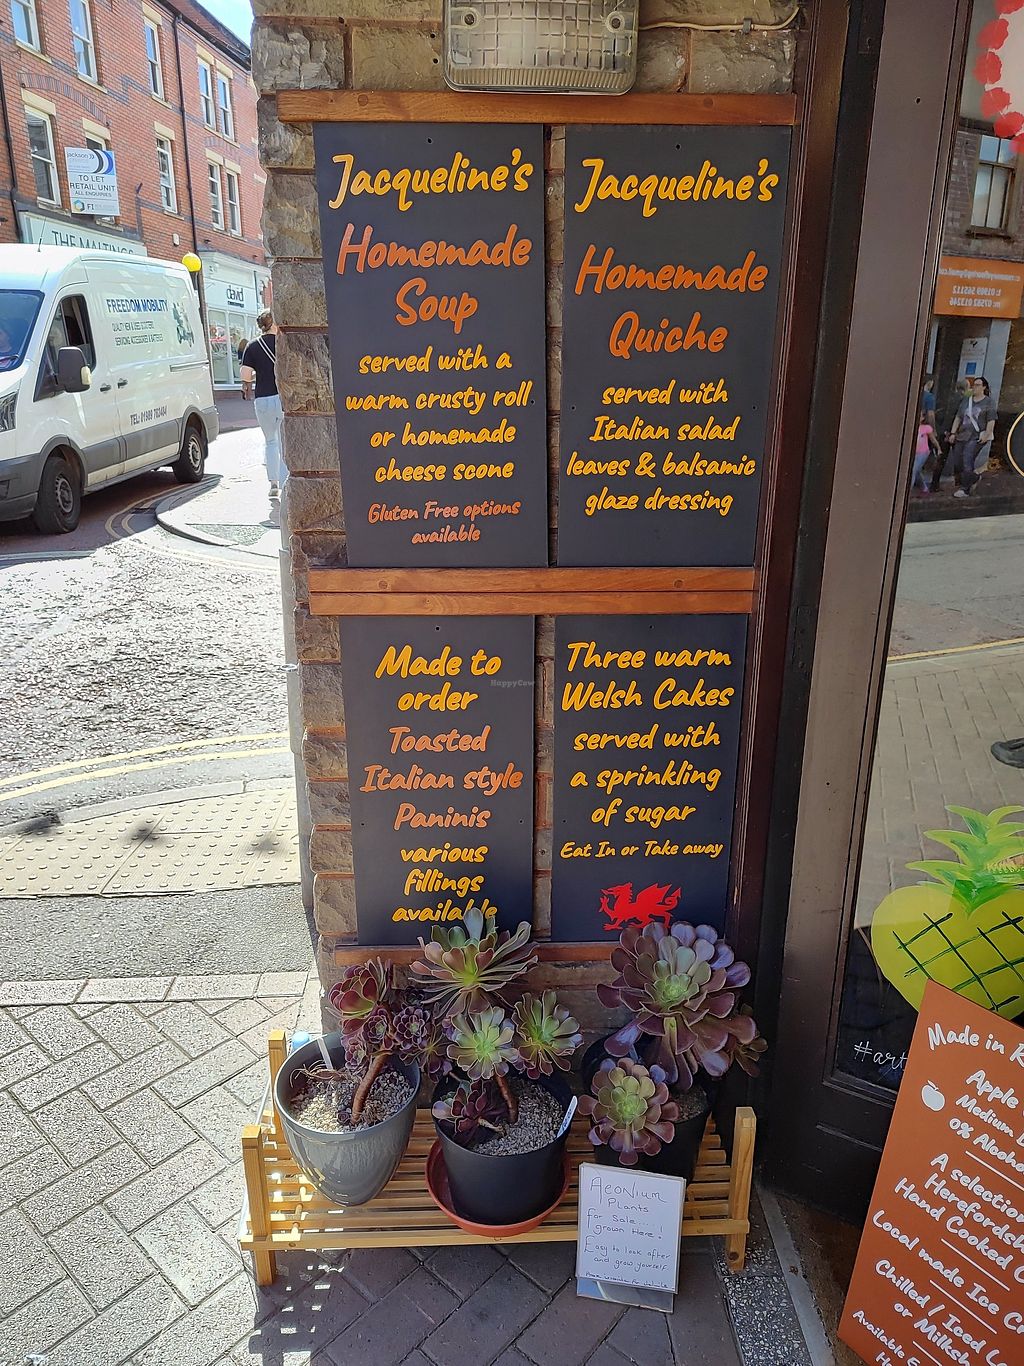 Jacqueline's
Homemade
Soup
served with a
warm crusty roll
or homemade
cheese scone
Gluten Free options
available
Jacqueline's
Homemade
Quiche
served with
Italian salad
leaves & balsamic
glaze dressing
Made to
order
Toasted
Italian style
Paninis
various
fillings
available
Three warm
Welsh Cakes
served with
a sprinkling
of sugar
Eat In or Take away
HappyCow
jackson
TO LET
RETAIL UNIT
ALL ENQUIRIES
THE MALTINGS
FREEDOM MOBILITY
QUALITY NEW & USED SCOOTERS
SERVICING, ACCESSORIES & BATTERIES
TEL: 01989 762404
david
t: 01989 565112
m: 07582 013246
Aeonium
Plants
for Sale.....!
grown Here!
Easy to look after
and grow yourself
#art
Made in
Apple
Medium
0% Alcohol
A selection
Herefordsh
Hand Cooked
Local made Ice Cr
Chilled / Iced
or Milksh
Available